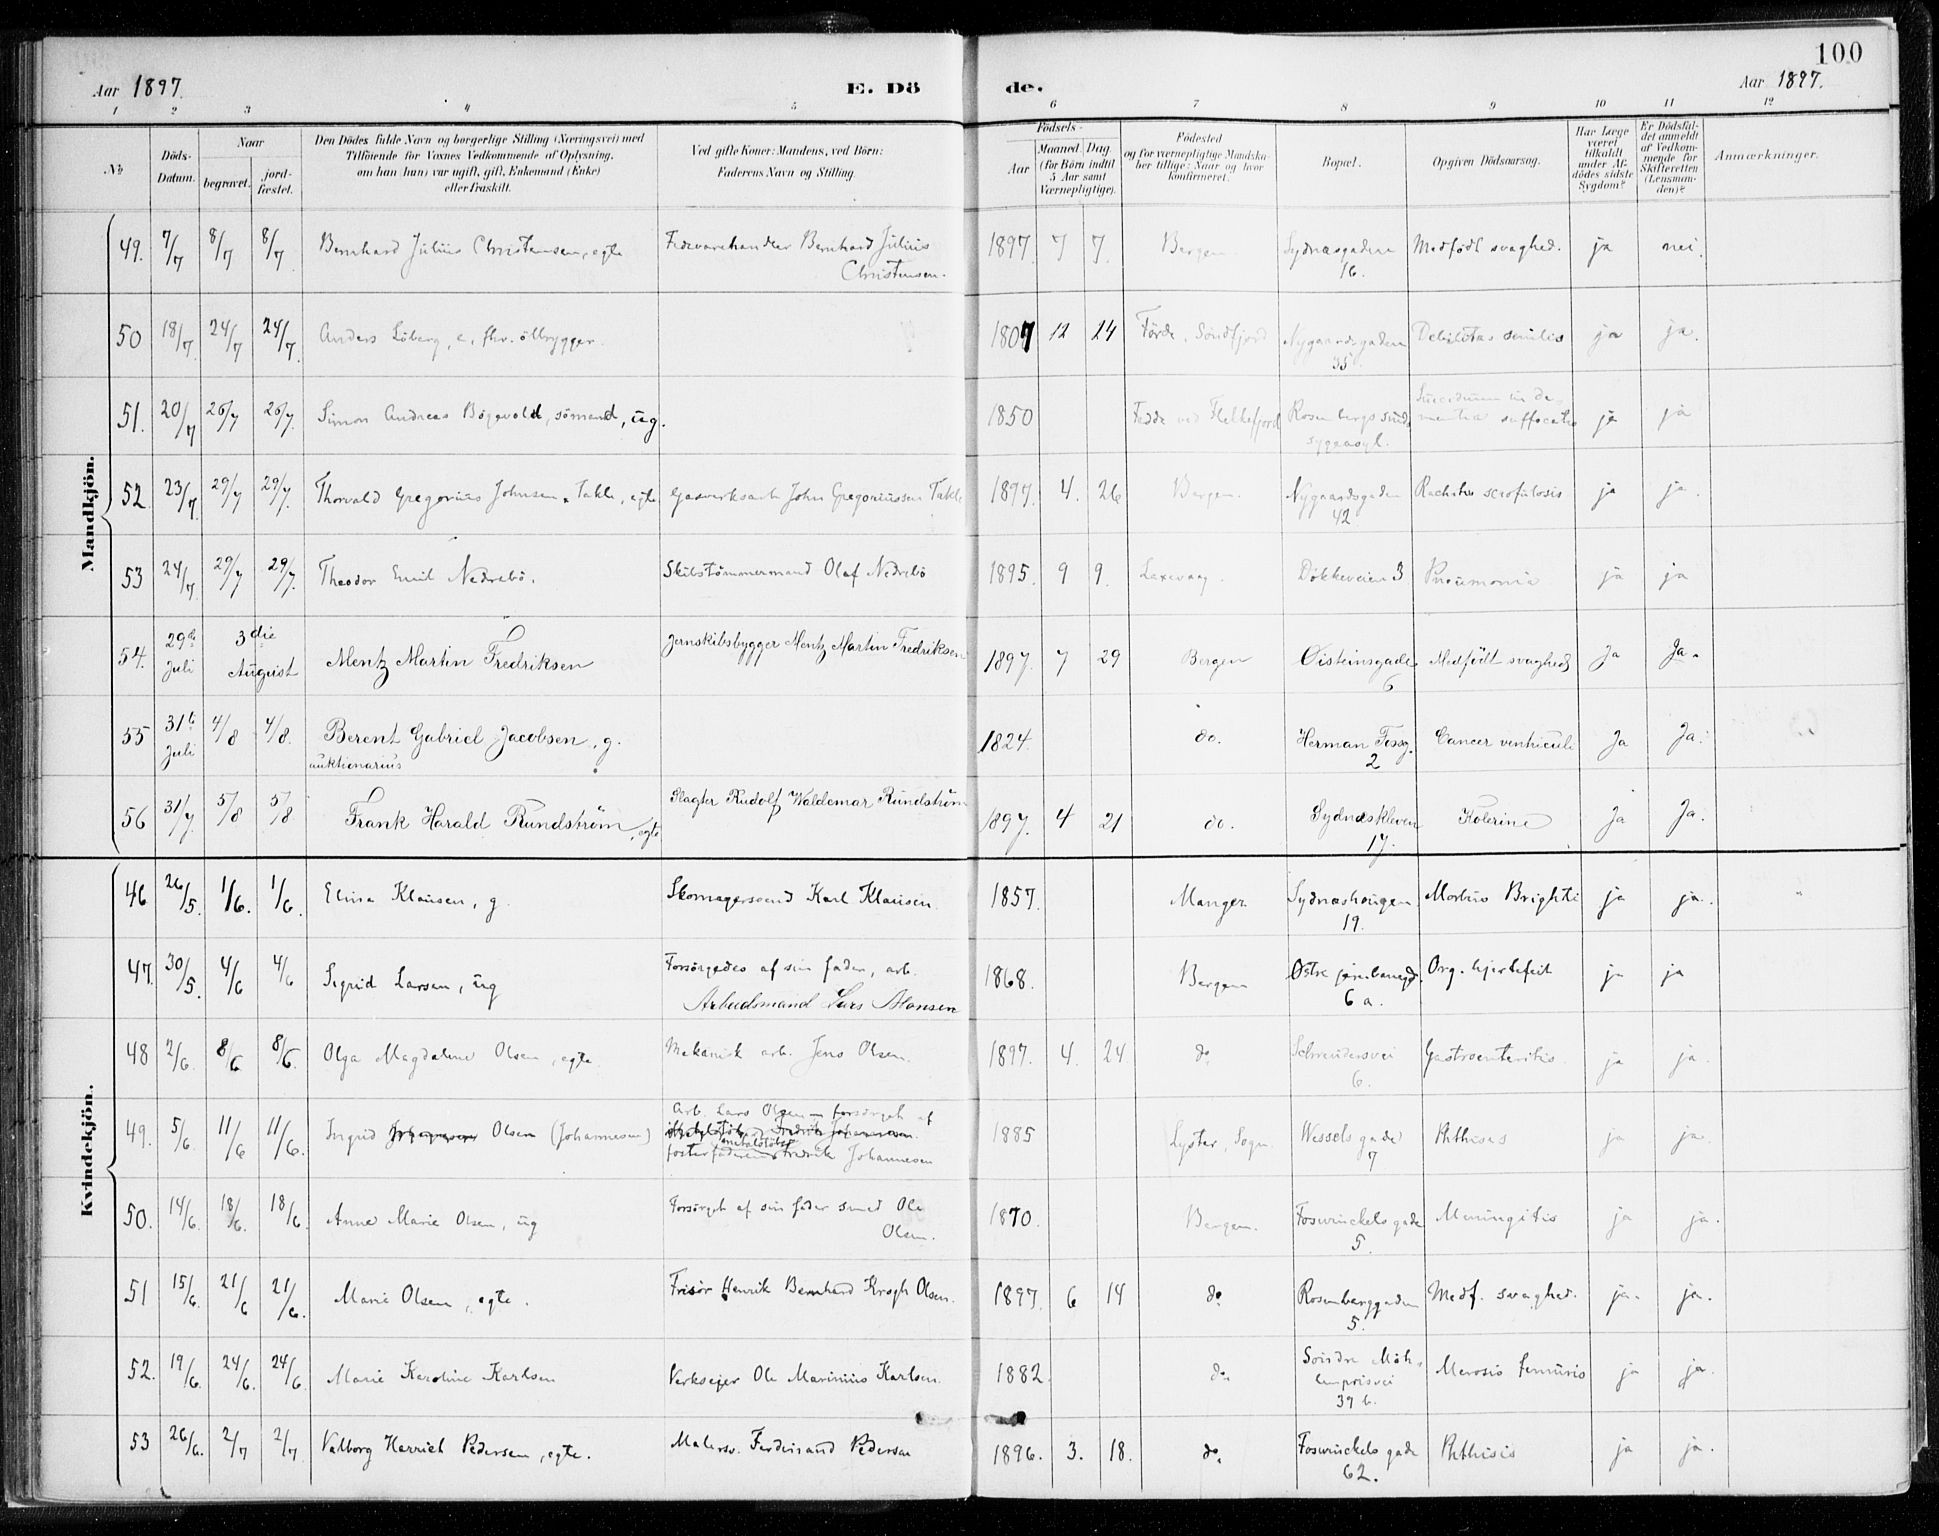 100
Aar 1897.
E. Döde.
Aar 1897.
1 2 3 4 5 6 7 8 9 10 11 12
No.
Döds-Datum.
Naar
begravet.
jord-fæstet.
Den Dödes fulde Navn og borgerlige Stilling (Næringsvei) med
Tilföiende for Voxnes Vedkommende af Oplysning,
om han (hun) var ugift, gift, Enkemand (Enke)
eller fraskilt.
Ved gifte Koner: Mandens, ved Börn:
Faderens Navn og Stilling.
Födsels-
Aar
Maaned. Dag
(for Börn indtil
5 Aar samt
Værnepligtige).
Födested
og for værnepligtige Mandska-
ber tillige: Naar og hvor
konfirmeret.
Bopæl.
Opgiven Dödsaarsag.
Har Læge
været
tilkaldt
under Af-
dödes sidste
Sygdom?
Er Dödsfal-
det anmeldt
af Vedkom-
mende for
Skifteretten
(Lensman-
den)?
Anmærkninger.
Mandkjön.
49. 7/7 8/7 8/7 Bernhard Julius Christensen, egte Fedevarehandler Bernhard Julius Christensen. 1897 7 7. Bergen. Sydnæsgaden 16. Medfödt svaghed. ja nei.
50 18/7. 24/7 24/7. Anders Löberg, e, fhv. ölbrygger. 1807 12 24 Förde, Söndfjord Nygaardsgaden 35 Debilitas senilis ja ja.
51. 20/7 26/7 26/7. Simon Andreas Bögevold, sömand, ug. 1850 Fedde ved Flekkefjord Rosenbergs sinds sygeasyl. suffocatio ja ja
52 23/7. 29/7 29/7. Thorvald Gregorius Johnsen Takle, egte Gasverksarb John Gregoriussen Takle 1897. 4. 26 Bergen. Nygaardsgaden 42 Rachitis scrofulosis ja ja.
53 24/7. 29/7 29/7. Theodor Emil Nedrebö. Skibstömmermand Olaf Nedrebö 1895. 9 9. Laxevaag. Dökkeveien 3 Pneumonia ja ja
54. 29de Juli 3die August Mentz Martin Fredriksen Jernskibsbygger Mentz Martin Fredriksen 1897. 7 29 Bergen Øisteinsgade 6 Medfödt svaghed Ja Ja.
55 31te Juli 4/8 4/8. Berent Gabriel Jacobsen, g. auktionarius 1824. do. Herman Fossg. 2 Cancer ventriculi Ja Ja.
56 31/7. 5/8 5/8. Frank Harald Rundström, egte Slagter Rudolf Waldemar Rundström 1897. 4 21 do. Sydnæskleven 17. Kolerine Ja Ja.
Kvindekjön.
46 26/5. 1/6. 1/6. Elina Klausen, g. Skomagersvend Karl Klausen. 1857. Manger Sydnæshaugen 19. Morbus Brighti ja ja.
47. 30/5. 4/6 4/6 Sigrid Larsen, ug Forsörgedes af sin fader, arb. Arbeidsmand Lars Monsen 1868. Bergen Østre jernbanegd. 6 a. Org. hjertefeil ja ja
48 2/6. 8/6 8/6. Olga Magdalene Olsen, egte. Mekanisk arb. Jens Olsen. 1897. 4. 24 do. 6. Gastroenteritis. ja ja.
49. 5/6. 11/6 11/6. Ingrid Olsen (Johannesen) Arb. Lars Olsen – forsörget af fosterfaderen metalstöber Fredrik Johannesen 1885 Lyster, Sogn. Wessels gade 7 Phthisis ja ja.
50. 14/6. 18/6. 18/6. Anne Marie Olsen, ug Forsörget af sin fader smed Ole Olsen. 1870. Bergen. Foswinckels gade 5. Meningitis ja ja.
51 15/6. 21/6 21/6. Marie Olsen, egte. Frisör Henrik Bernhard Krogh Olsen. 1897. 6 14 do Rosenberggaden 5. Medf. svaghed. ja. ja.
52. 19/6. 24/6. 24/6. Marie Karoline Karlsen Verkseier Ole Marinius Karlsen. 1882. do. Söndre Möhlenprisvei 39 b. femuris ja ja.
53 26/6. 2/7 2/7 Valborg Harriet Pedersen, egte. Malersv. Ferdinand Pedersen 1896. 3. 18. do. Foswinckels gade 62. Phthisis ja ja.